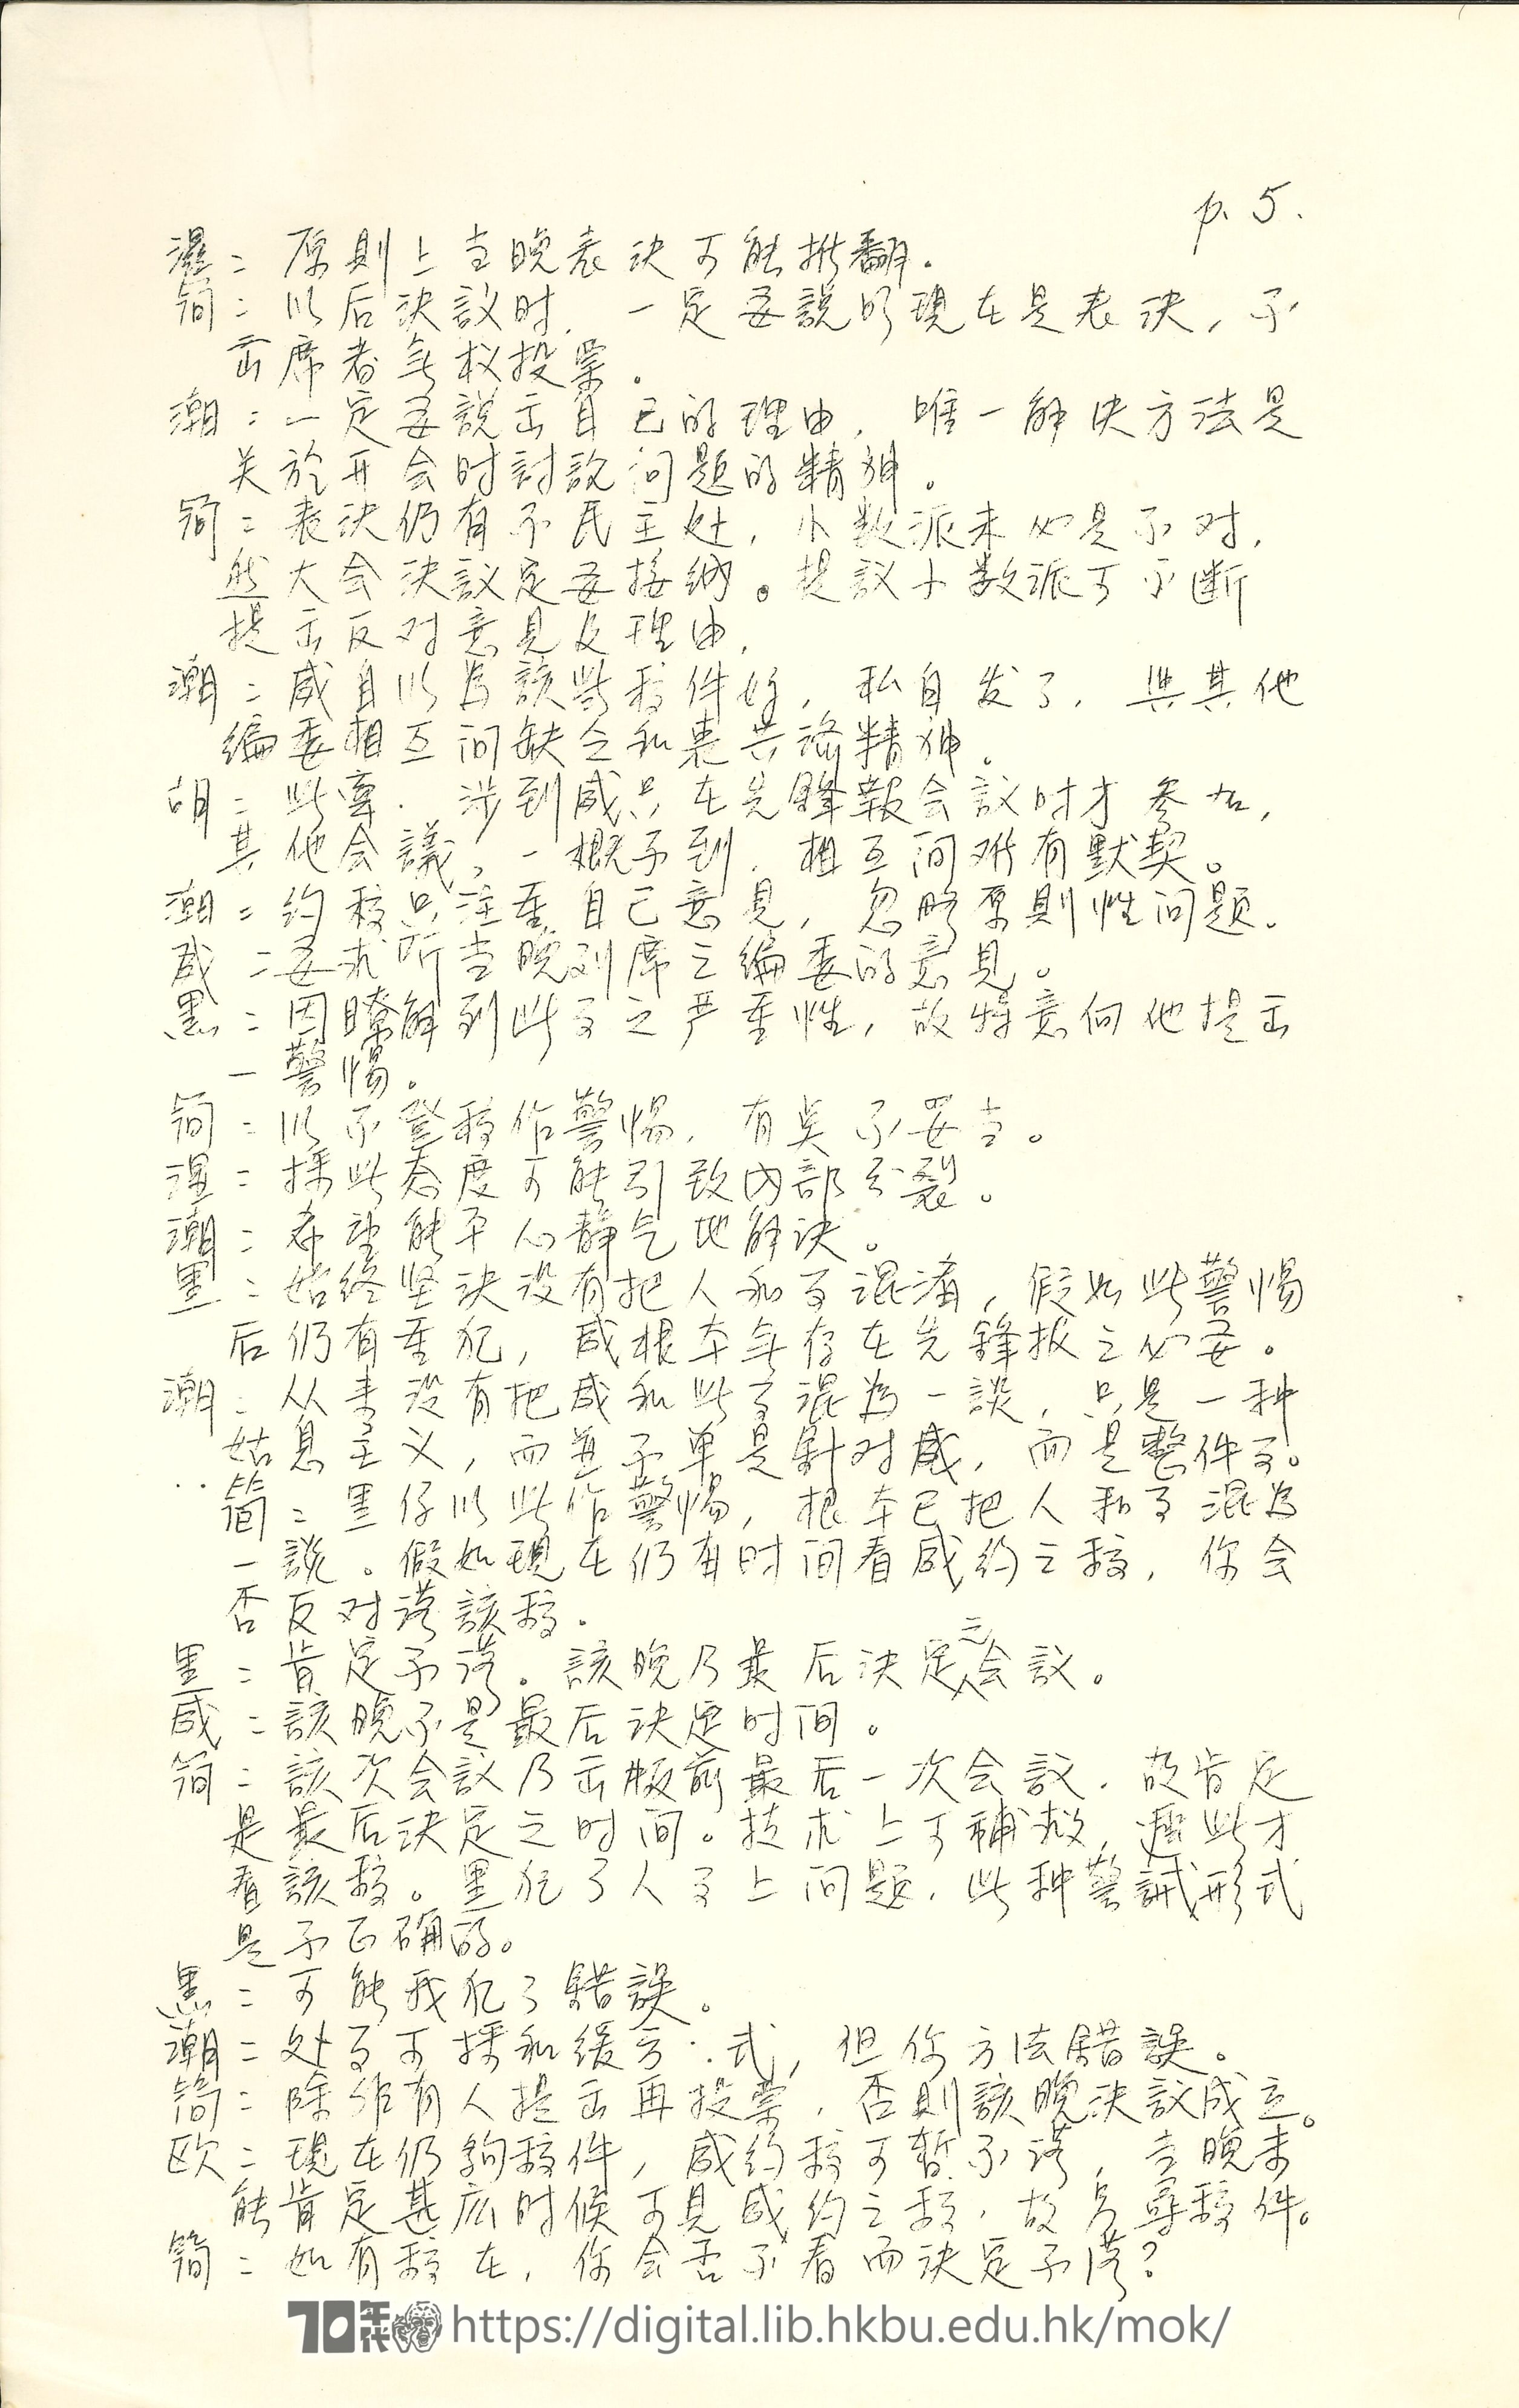 p. 5.
湿：原則上当晚表决可能推翻。
简：以后决議时，一定要說明現在是表决，不
出席者無权投票。
潮：一定要說出自己的理由，唯一解决方法是
关於开会时討論问題的精神。
简：表决仍有不民主处，小数派未必是不对，
然大会决議定要接纳。提議小数派可不断
提出反对意見及理由，
潮：咸自以為該些稿件好，私自发了，與其他
编委相互间缺乏和衷共济精神。
胡：此事．涉到咸只在先鋒報会議时才参加，
其他会議，一概不到，相互间难有默契。
潮：约稿只注重自己意見，忽略原則性问題。
咸：要求听当晚列席之编委的意見。
黑：因瞭解到此事之严重性，故特意向他提出
一警惕。
简：以不登稿作警惕，有臭不妥当。
湿：採此态度可能引致内部分裂。
潮：希望能平心静气地解决。
黑：始终坚决没有把人和事混淆，假如此警惕
后仍有重犯，咸根本無存在先鋒报之必要。
潮：从来没有把咸和此事混為一談，只是一种
姑息主义，而並不单是針对咸，而是整件事。
简：黑仔以此作警惕，根本已把人和事混為
一談。假如現在仍有时间看咸约之稿，你会
否反对落該稿．
黑：肯定不落。該晚乃最后决定之会議。
咸：該晚不是最后决定时间。
简：該次会議乃出版前最后一次会議，故肯定
是最后决定之时间。技术上可補救，趕些才
看該稿。黑犯了人事上问題，此种警誡形式
是不正确的。
黑：可能我犯了错誤。
潮：处事可採和缓方式，但你方法错誤。
简：除非有人提出再投票，否則該晚决議成立。
欧：現在仍夠稿件，咸约稿可暂不落，当晚未
能肯定甚庅时候可見咸约之稿，故另尋稿件。
简：如有稿在，你会否不看而决定不落？
70年代 https://digital.lib.hkbu.edu.hk/mok/